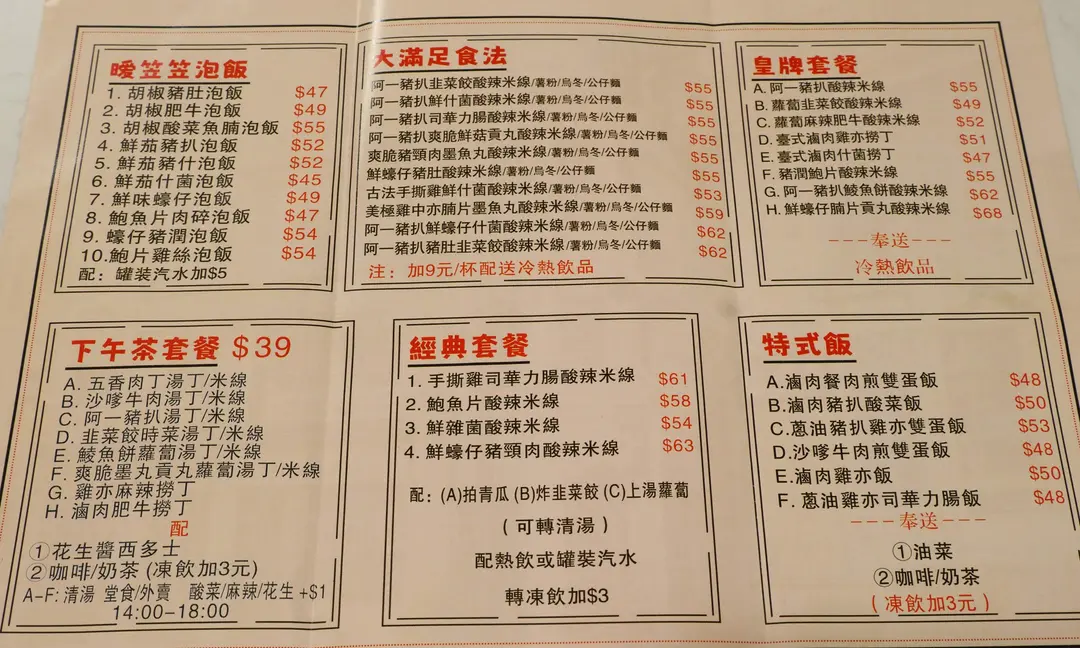 暖笠笠泡飯
1. 胡椒豬肚泡飯 $47
2. 胡椒肥牛泡飯 $49
3. 胡椒酸菜魚腩泡飯 $55
4. 鮮茄豬扒泡飯 $52
5. 鮮茄豬什泡飯 $52
6. 鮮茄什菌泡飯 $45
7. 鮮味蠔仔泡飯 $49
8. 鮑魚片肉碎泡飯 $47
9. 蠔仔豬潤泡飯 $54
10.鮑片雞絲泡飯 $54
配：罐裝汽水加$5
大滿足食法
阿一豬扒韭菜餃酸辣米線/薯粉/烏冬/公仔麵 $55
阿一豬扒鮮什菌酸辣米線/薯粉/烏冬/公仔麵 $55
阿一豬扒司華力腸酸辣米線/薯粉/烏冬/公仔麵 $55
阿一豬扒爽脆鮮菇貢丸酸辣米線/薯粉/烏冬/公仔麵 $55
爽脆豬頸肉墨魚丸酸辣米線/薯粉/烏冬/公仔麵 $55
鮮蠔仔豬肚酸辣米線/薯粉/烏冬/公仔麵 $55
古法手撕雞鮮什菌酸辣米線/薯粉/烏冬/公仔麵 $53
美極雞中亦腩片墨魚丸酸辣米線/薯粉/烏冬/公仔麵 $59
阿一豬扒鮮蠔仔什菌酸辣米線/薯粉/烏冬/公仔麵 $62
阿一豬扒豬肚韭菜餃酸辣米線/薯粉/烏冬/公仔麵 $62
注：加9元/杯配送冷熱飲品
皇牌套餐
A. 阿一豬扒酸辣米線 $55
B. 蘿蔔韭菜餃酸辣米線 $49
C. 蘿蔔麻辣肥牛酸辣米線 $52
D. 臺式滷肉雞亦撈丁 $51
E. 臺式滷肉什菌撈丁 $47
F. 豬潤鮑片酸辣米線 $55
G. 阿一豬扒鯪魚餅酸辣米線 $62
H. 鮮蠔仔腩片貢丸酸辣米線 $68
---奉送---
冷熱飲品
下午茶套餐 $39
A. 五香肉丁湯丁/米線
B. 沙嗲牛肉湯丁/米線
C. 阿一豬扒湯丁/米線
D. 韭菜餃時菜湯丁/米線
E. 鯪魚餅蘿蔔湯丁/米線
F. 爽脆墨丸貢丸蘿蔔湯丁/米線
G. 雞亦麻辣撈丁
H. 滷肉肥牛撈丁
配
①花生醬西多士
②咖啡/奶茶 (凍飲加3元)
A-F: 清湯 堂食/外賣 酸菜/麻辣/花生 +$1
14:00-18:00
經典套餐
1. 手撕雞司華力腸酸辣米線 $61
2. 鮑魚片酸辣米線 $58
3. 鮮雜菌酸辣米線 $54
4. 鮮蠔仔豬頸肉酸辣米線 $63
配：(A)拍青瓜 (B)炸韭菜餃 (C)上湯蘿蔔
( 可轉清湯 )
配熱飲或罐裝汽水
轉凍飲加$3
特式飯
A.滷肉餐肉煎雙蛋飯 $48
B.滷肉豬扒酸菜飯 $50
C.蔥油豬扒雞亦雙蛋飯 $53
D.沙嗲牛肉煎雙蛋飯 $48
E.滷肉雞亦飯 $50
F. 蔥油雞亦司華力腸飯 $48
---奉送---
①油菜
②咖啡/奶茶
( 凍飲加3元 )